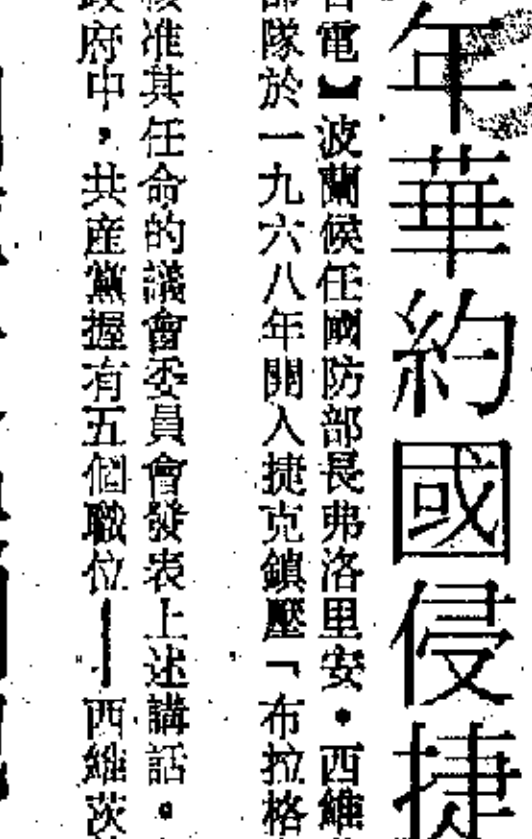 年華約國侵捷
電】波蘭候任國防部長弗洛里安•西維
部隊於一九六八年開入捷克鎮壓「布拉格
准其任命的議會委員會發表上述講話。
政府中,共產黨握有五個職位——西維茨